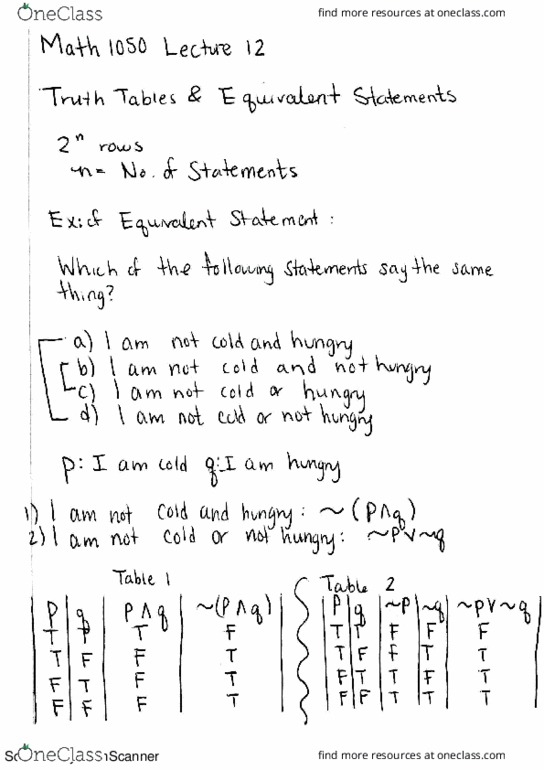 OneClass
find more resources at oneclass.com
Math 1050 Lecture 12
Truth Tables & Equivalent Statements
2ⁿ rows
n = No. of Statements
Ex: of Equivalent Statement :
Which of the following statements say the same
thing?
a) I am not cold and hungry
b) I am not cold and not hungry
c) I am not cold or hungry
d) I am not cold or not hungry
p: I am cold q: I am hungry
1) I am not cold and hungry: ~(p∧q)
2) I am not cold or not hungry: ~p∨~q
Table 1
Table 2
P q P∧q ~(P∧q)
T T T F
T F F T
F T F T
F F F T
P q ~P ~q ~P∨~q
T T F F F
T F f T T
F T T F T
F F T T T
OneClass
Scanner
find more resources at oneclass.com